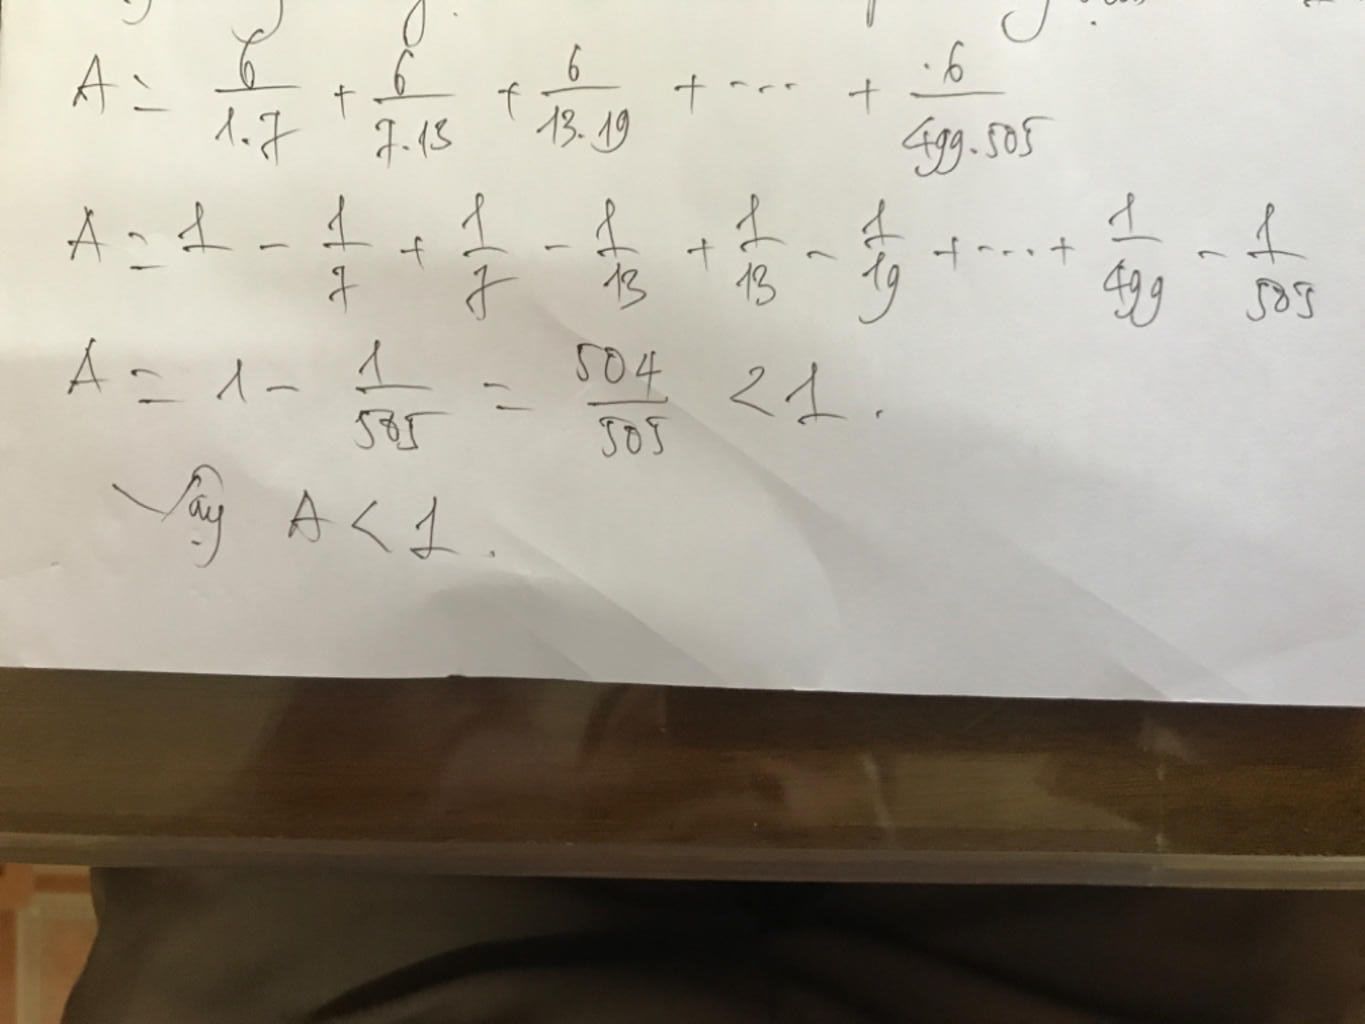 A = 6/1.7 + 6/7.13 + 6/13.19 + ... + 6/499.505
A = 1 - 1/7 + 1/7 - 1/13 + 1/13 - 1/19 + ... + 1/499 - 1/505
A = 1 - 1/505 = 504/505 < 1.
Vậy A < 1.